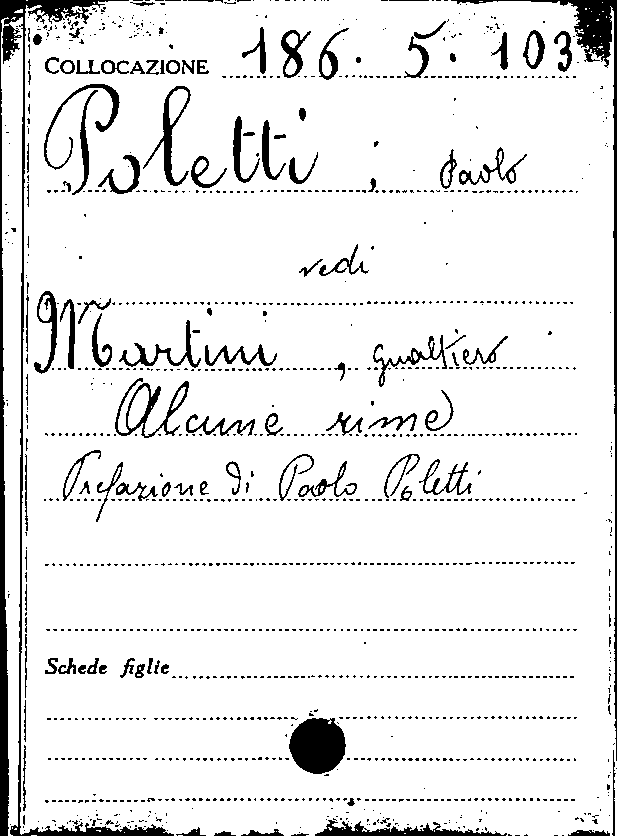 COLLOCAZIONE 186. 5. 103
Poletti, Paolo
vedi
Martini, Gualtiero
Alcune rime
Prefazione di Paolo Poletti
Schede figlie